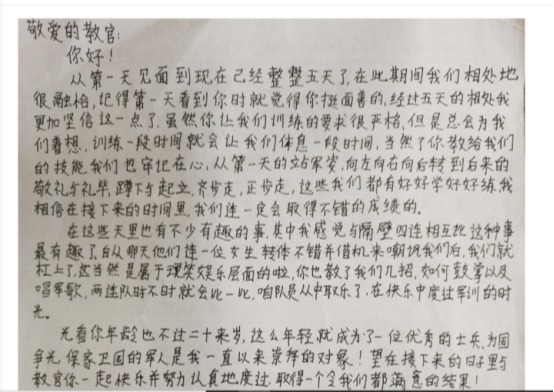 敬爱的教官:
你好!
从第一天见面到现在已经整整五天了,在此期间我们相处地
很融洽,记得第一天看到你时就觉得你挺面善的,经过五天的相处我
更加坚信这一点了.虽然你让我们训练的要求很严格,但是总会为我
们着想,训练一段时间就会让我们休息一段时间,当然了你教给我们
的技能我们也牢记在心,从第一天的站军姿,向左向右向后转到后来的
敬礼与礼毕,蹲下与起立,齐步走,正步走,这些我们都有好好学好好练,我
相信在接下来的时间里,我们连一定会取得不错的成绩的。
在这些天里也有不少有趣的事,其中我感觉与隔壁四连相互比这种事
最有趣了,自从那天他们连一位女生转体不错并借机来嘲讽我们后,我们就
杠上了,这当然是属于理笑娱乐层面的啦,你也教了我们几招,如何鼓掌以及
唱军歌,两连队时不时就会比一比,咱队员从中取乐了,在快乐中度过军训的时
光。
光看你年龄也不过二十来岁,这么年轻就成为了一位优秀的士兵,为国
争光,保家卫国的军人是我一直以来崇拜的对象!望在接下来的日子里与
教官你一起快乐并努力认真地度过,取得一个令我们都满意的结果!